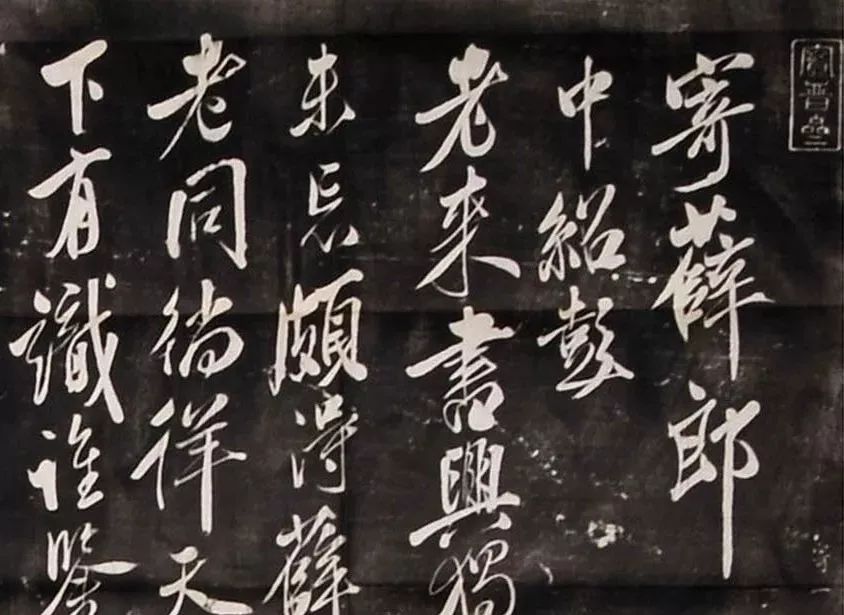 寶晉齋
寄薛郎
中紹彭
老來書興獨
未忘頗淂薛
老同徜徉天
下有識誰鑒